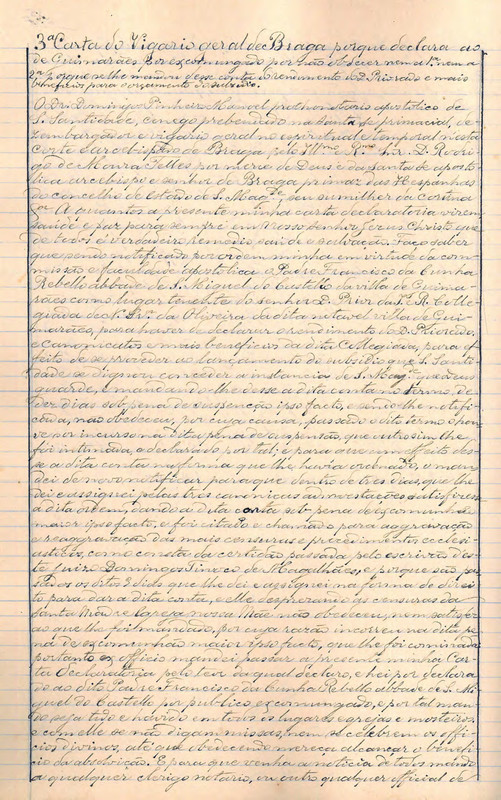 3ª Carta do Vigario geral de Braga porque declara ao
de Guimarães por excomungado por não obdecer nem a 1ª nem a
2ª porque se lhe mandou desse conta do rendimento do D. Priorado e mais
beneficios para o lançamento do subsidio.
O Dr. Domingos Pinheiro Manoel prothonotario apostolico de
S. Santidade, conego prebendado na Santa Sé primacial, de-
zembargador e vigario geral no espiritual e temporal n'esta
corte d'arcebispado de Braga, pelo Illmo e Rmo Snr. D. Rodri-
go de Moura Telles por mercê de Deus e da Santa Sé aposto-
lica arcebispo e senhor de Braga primaz das Hespanhas
do concelho de Estado de S. Magde, seu sumilher da cortina
etc. A quantos a presente minha carta declaratoria virem
saude e paz para sempre em Nosso Senhor Jesus Christo que
de todos é verdadeiro remedio saude e salvação. Faço saber
que sendo notificado por ordem minha em virtude da com-
missão e faculdade apostolica o Padre Francisco da Cunha
Rebello abbade de S. Miguel do Castello da villa de Guima-
rães como lugar tenente do senhor D. Prior da S. R. Colle-
giada de N. Srª da Oliveira da dita notavel villa de Gui-
marães, para haver de declarar o rendimento do D. Priorado,
e canonicatos e mais beneficios da dita Collegiada, para ef-
feito de se proceder ao lançamento do subsidio que S. Santi-
dade se dignou conceder a instancia de S. Magde que Deus
guarde, e mandando-lhe desse a dita conta no termo de
tres dias sob pena de suspenção ipso facto, e sendo-lhe notifi-
cada, não obedeceu, por cuja causa, passado o dito termo o hou-
ve por incurso na dita pena de suspensão, que outrosim lhe
foi intimada, e declarado por tal; e para que com effeito des-
se a dita conta na forma que lhe havia ordenado, o man-
dei de novo notificar para que dentro de tres dias, que lhe
dei e assignei pelas tres canonicas admoestações satisfizesse
a dita ordem, dando a dita conta sob pena de excomunhão
maior ipso facto, e foi citado e chamado para aggravação
e reaggravação das mais censuras e procedimentos ecclesi-
asticos, como consta da certidão passada pelo escrivão d'es-
te juizo Domingos Tinoco de Magalhães; e porque são pas-
sados os ditos 3 dias que lhe dei e assignei na forma de direi-
to para dar a dita conta, e elle desprezando as censuras da
Santa Madre Egreja nossa Mãe não obedeceu, nem satisfez
ao que lhe foi mandado, por cuja razão incorreu na dita pe-
na de excomunhão maior ipso facto, que lhe foi cominada
portanto ex officio mandei passar a presente minha car-
ta declaratoria pelo teor da qual declaro, e hei por declara-
do ao dito Padre Francisco da Cunha Rebello abbade de S. Mi-
guel do Castello por publico excomungado, e por tal man-
do seja tido e havido em todos os lugares egrejas e mosteiros
e com elle se não digam missas, nem se celebrem os offi-
cios divinos, até que obedecendo mereça alcançar o benefi-
cio da absolvição. E para que venha a noticia de todos mando
a qualquer clerigo notario, ou outro qualquer official de